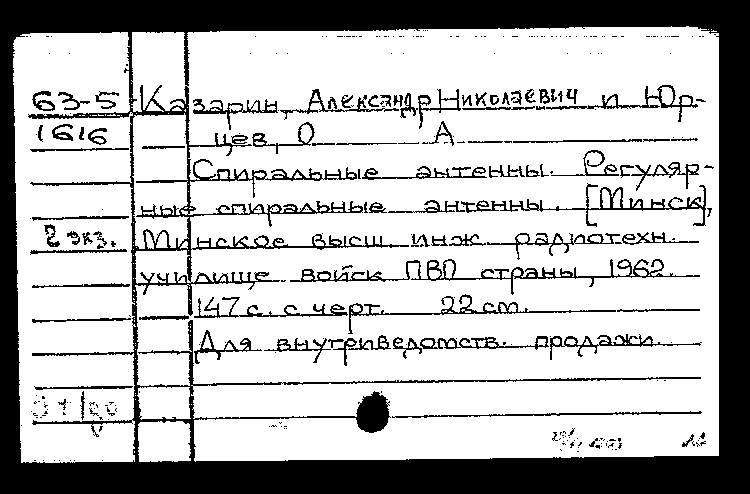 63-5 Казарин, Александр Николаевич и Юр-
1616 цев, О А
Спиральные антенны. Регуляр-
ные спиральные антенны. [Минск],
2 экз. Минское высш. инж. радиотехн.
училище войск ПВО страны, 1962.
147 с. с черт. 22 см.
Для внутриведомств. продажи